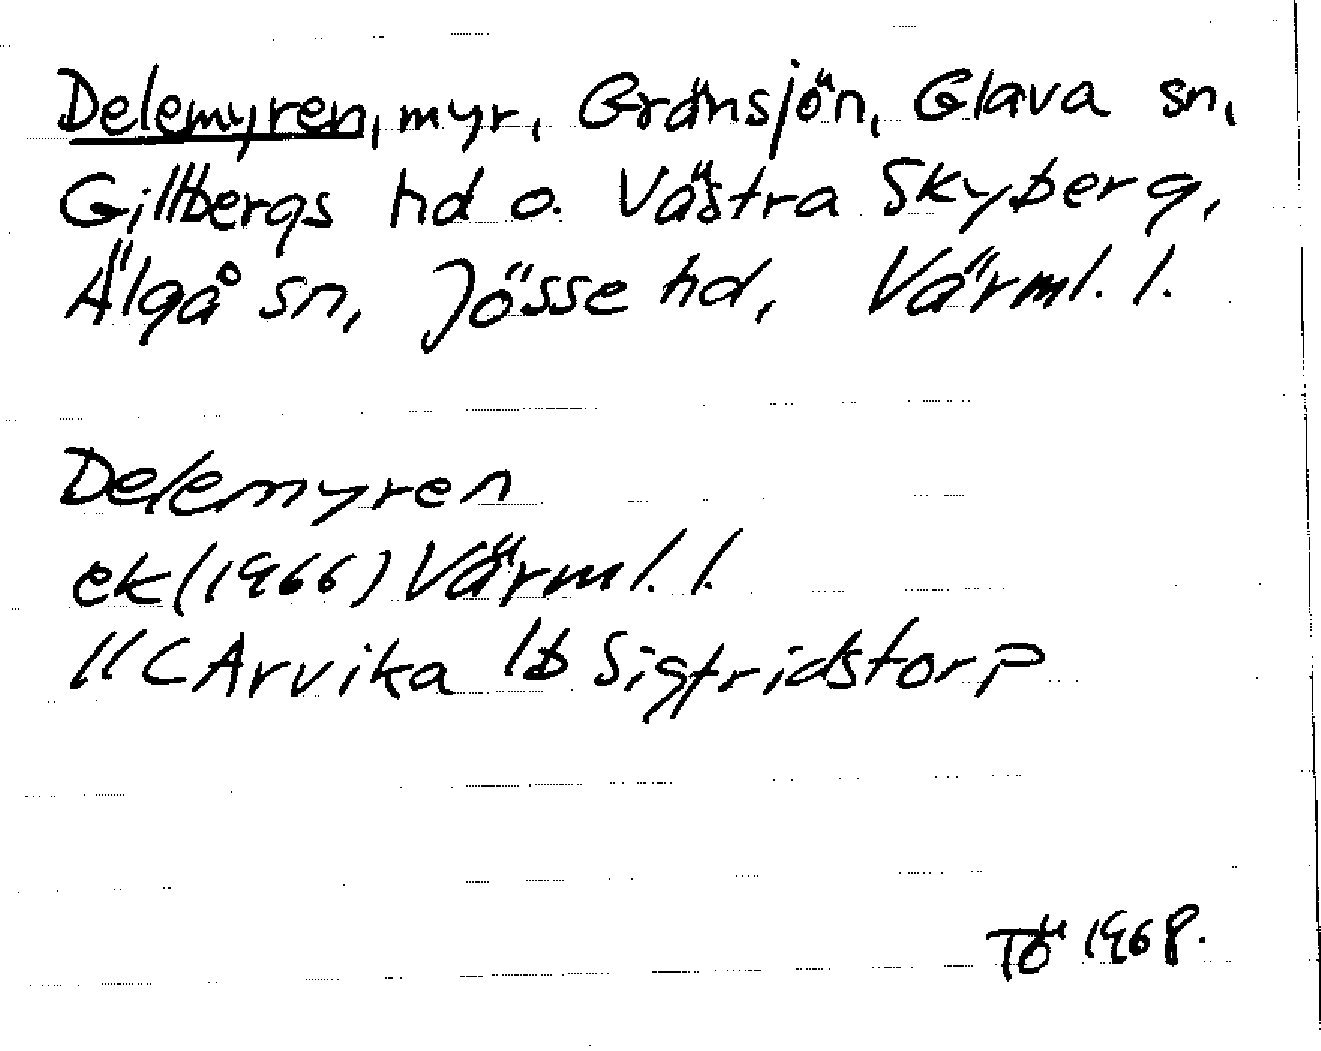 Delemyren, myr, Gränsjön, Glava sn,
Gillbergs hd o. Västra Skyberg,
Älgå sn, Jösse hd, Värml. l.
Delemyren
ek (1966) Värml. l.
11C Arvika 1b Sigfridstorp
TÖ 1968.